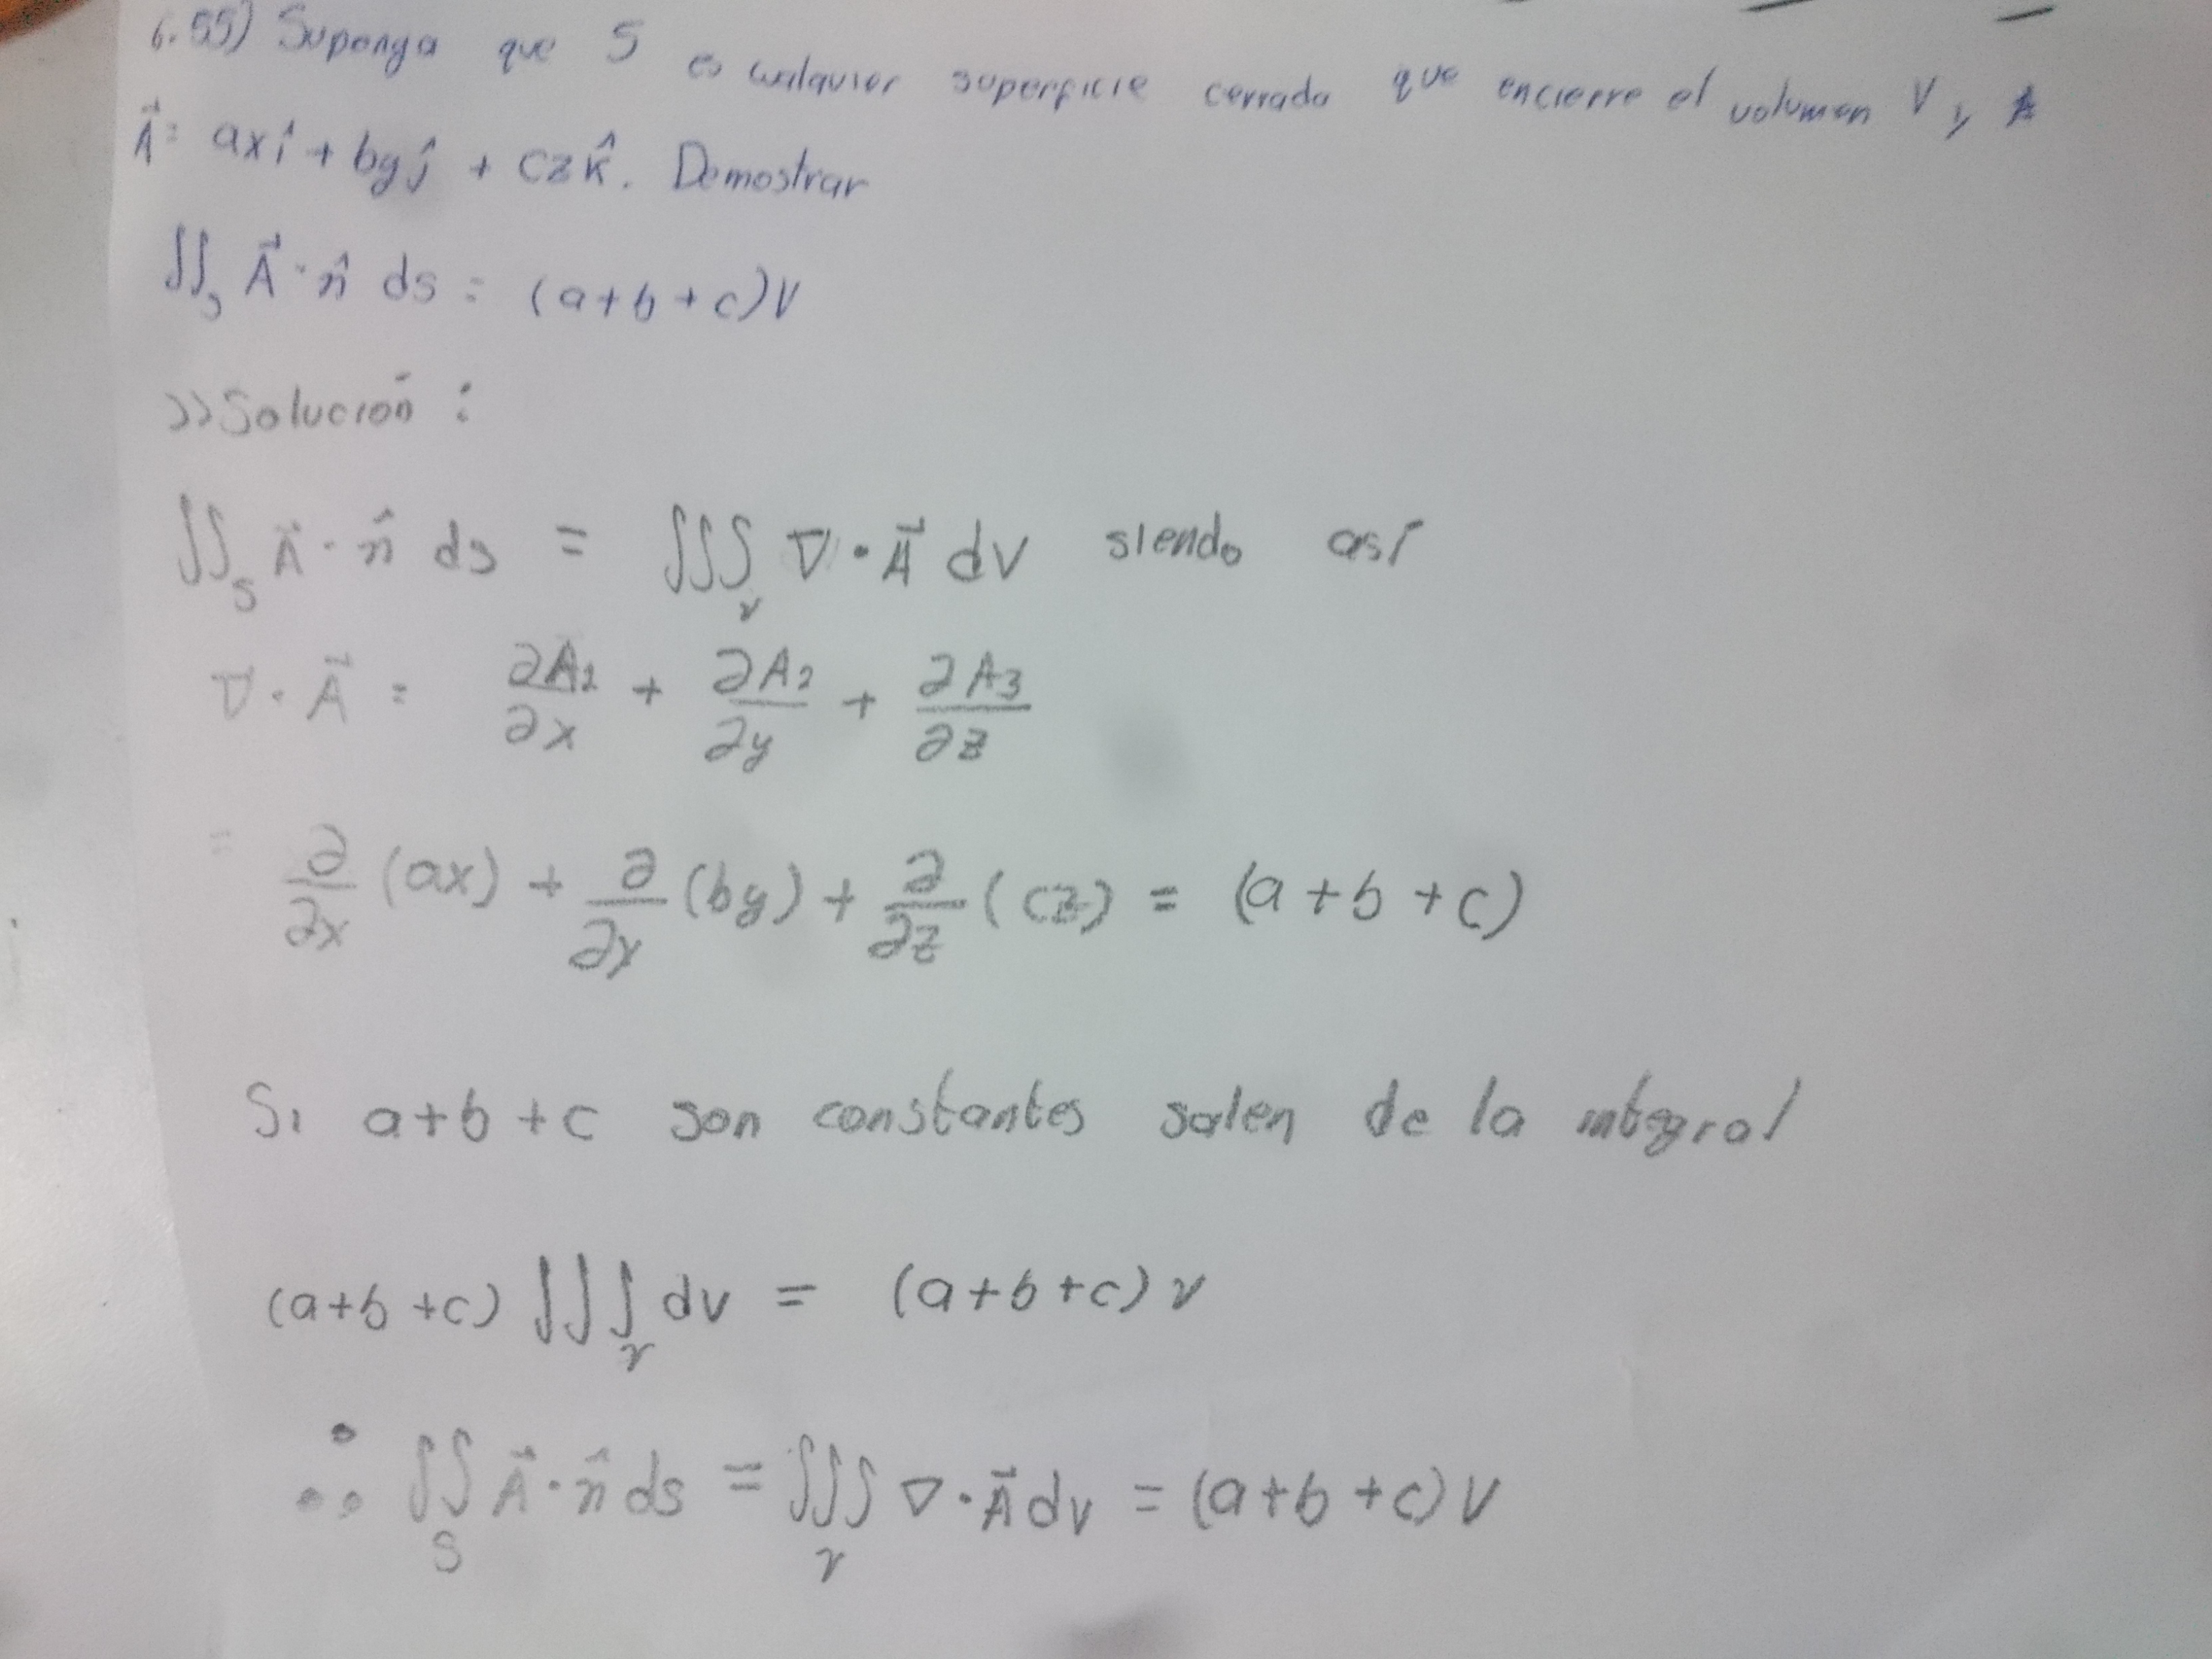 6.55) Suponga que S es cualquier superficie cerrada que encierre el volumen V y
A⃗ = axî + byĵ + czk̂. Demostrar
∬ₛ A⃗ · n̂ ds = (a+b+c)V
>>Solución:
∬ₛ A⃗ · n̂ ds = ∭ᵥ ∇ · A⃗ dv siendo así
∇ · A⃗ = ∂A₁/∂x + ∂A₂/∂y + ∂A₃/∂z
= ∂/∂x (ax) + ∂/∂y (by) + ∂/∂z (cz) = (a+b+c)
Si a+b+c son constantes salen de la integral
(a+b+c) ∭ᵥ dv = (a+b+c)v
∴ ∬ₛ A⃗ · n̂ ds = ∭ᵥ ∇ · A⃗ dv = (a+b+c)V